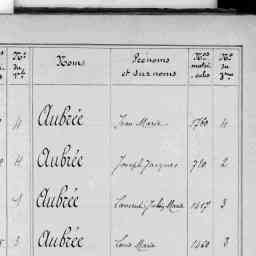 Nos Noms Prénoms et surnoms Nos matricules No du
4 Aubrée Jean Marie 1760 4
4 Aubrée Joseph Jacques 710 2
4 Aubrée Marie 1417 3
3 Aubrée Louis Marie 1460 3